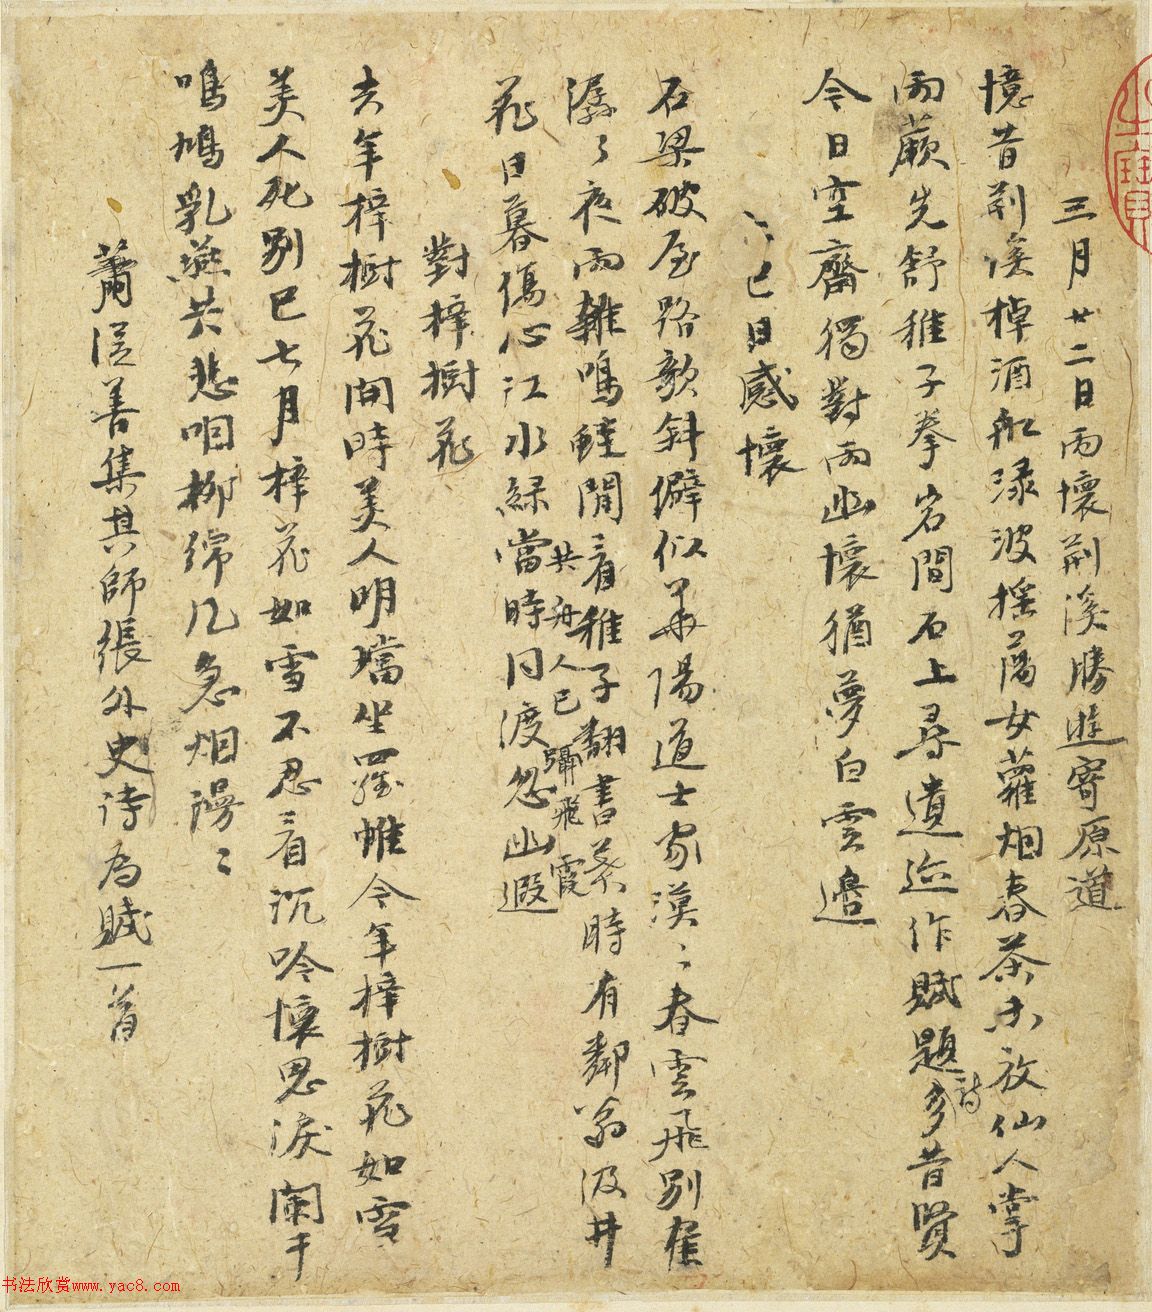 三月廿二日雨懷荆溪勝遊寄原道
憶昔荆溪棹酒船淥波摇蕩女蘿烟春茶未放仙人掌
雨蕨先舒稚子拳岩間石上尋遺迹作賦題詩多昔賢
今日空齋獨對雨幽懷猶夢白雲邊
上巳日感懷
石梁破屋路欹斜僻似華陽道士家漠〻春雲飛別崦
潺〻夜雨雜鳴蛙閒看稚子翻書葉時有鄰翁汲井
花日暮傷心江水緑當時同渡忽幽遐
共舟人已躡飛霞
對梓樹花
去年梓樹花開時美人明璫坐羅帷今年梓樹花如雪
美人死別已七月梓花如雪不忍看沉吟懷思淚闌干
鳴鳩乳燕共悲咽柳綿風急烟漫〻
蕭從善集其師張外史詩為賦一首
書法欣赏www.yac8.com